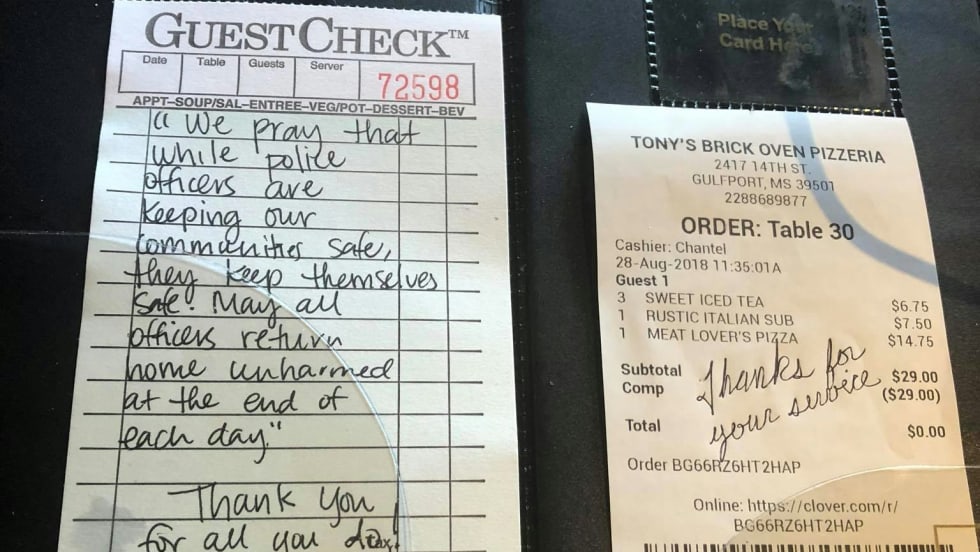 GUEST CHECK™
Date Table Guests Server
72598
APPT–SOUP/SAL–ENTREE–VEG/POT–DESSERT–BEV
"We pray that
while police
officers are
keeping our
communities safe,
they keep themselves
safe. May all
officers return
home unharmed
at the end of
each day."
Thank you
for all you do
Place Your
Card Here
TONY'S BRICK OVEN PIZZERIA
2417 14TH ST.
GULFPORT, MS 39501
2288689877
ORDER: Table 30
Cashier: Chantel
28-Aug-2018 11:35:01A
Guest 1
3 SWEET ICED TEA $6.75
1 RUSTIC ITALIAN SUB $7.50
1 MEAT LOVER'S PIZZA $14.75
Subtotal $29.00
Comp ($29.00)
Thanks for
your service
Total $0.00
Order BG66RZ6HT2HAP
Online: https://clover.com/r/
BG66RZ6HT2HAP